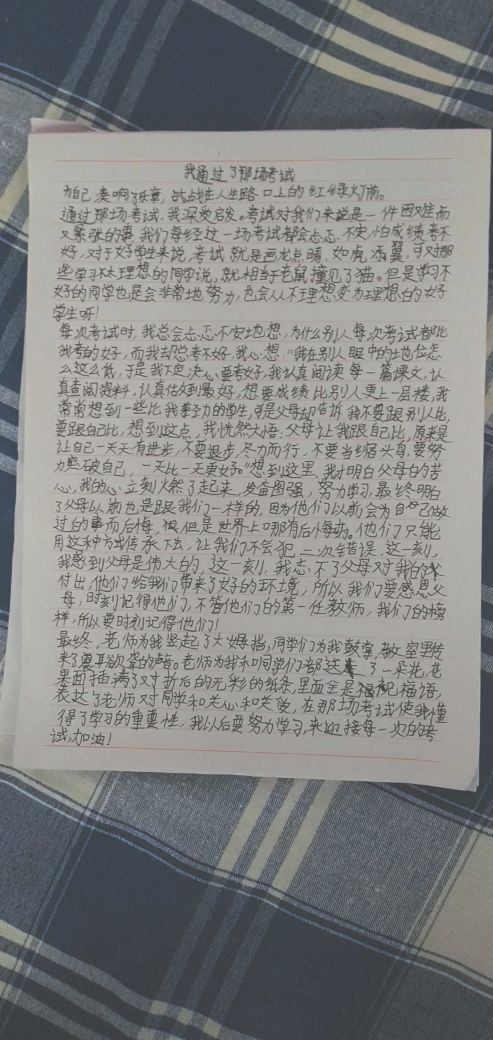 我通过了那场考试
为自己奏响了乐章，站在人生路口上的红绿灯前。
通过那场考试，我深受启发。考试对我们来说是一件困难而
又紧张的事，我们每经过一场考试都会忐忑不安，怕成绩考不
好，对于好学生来说，考试就是画龙点睛，如虎添翼，可对那
些学习不太理想的同学说，就相当于老鼠撞见了猫。但是学习不
好的同学也是会非常地努力，也会从不理想变为理想的好
学生呀！
每次考试时，我总会忐忑不安地想，为什么别人每次考试都比
我考的好，而我却总考不好，我心想："我在别人眼中的地位怎
么这么低，于是我下定决心要考好，我认真阅读每一篇课文，认
真查阅资料，认真做到最好，想要成绩比别人更上一层楼，我
常常想到一些比我努力的学生，可是父母却告诉我不要跟别人比，
要跟自己比，想到这点，我恍然大悟，父母让我跟自己比，原来是
让自己一天天有进步，不要退步，尽力而行，不要当缩头龟，要努
力突破自己，一天比一天更好。"想到这里，我才明白父母的苦
心，我的心立刻火然了起来，发奋图强，努力学习，最终明白
了父母以前也是跟我们一样的，因为他们以前会为自己做
过的事而后悔，但是世界上哪有后悔药。他们只能
用这种方式传承下去，让我们不会犯二次错误，这一刻，
我感到父母是伟大的，这一刻，我忘不了父母对我的
付出，他们给我们带来了好的环境，所以我们要感恩父
母，时刻记得他们，不管他们的第一任教师，我们的榜
样，所以要时刻记得他们！
最终，老师为我竖起了大姆指，同学们为我鼓掌，教室里发
来了震耳欲聋的声音。老师为我和同学们都送了一朵花，花
里面插满了对折后的无彩的纸条，里面全是祝福语，
表达了老师对同学和关心和关爱，在那场考试使我懂
得了学习的重要性，我以后要努力学习，来迎接每一次的考
试，加油！